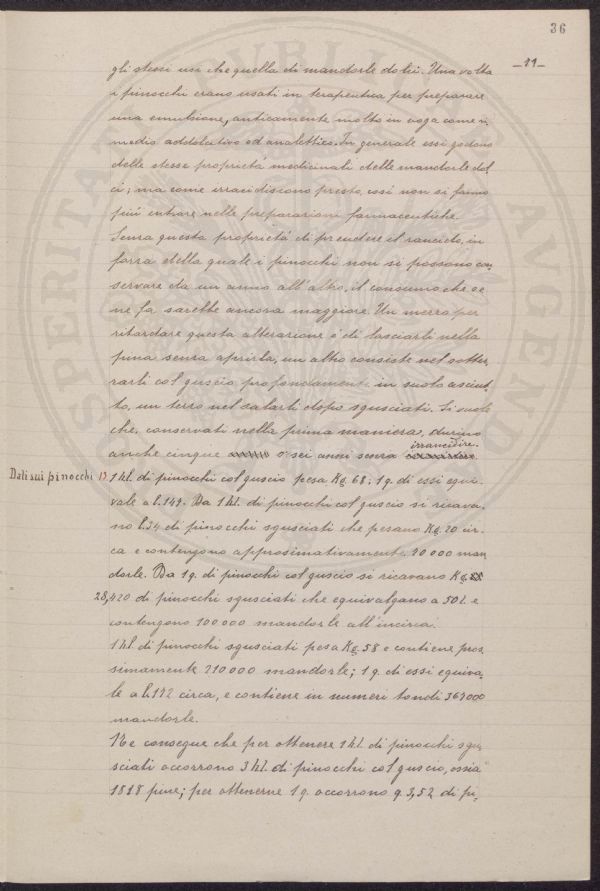 36
-11-
gli stessi usi che quella di mandorle dolci. Una volta
i pinocchi erano usati in terapeutica per preparare
una emulsione, anticamente molto in voga come ri
medio addolcitivo ed analettico. In generale essi godono
delle stesse proprietà medicinali delle mandorle dol
ci; ma come irrancidiscono presto, così non si fanno
più entrare nelle preparazioni farmaceutiche.
Senza questa proprietà di prendere il rancido, in
forza della quale i pinocchi non si possono con
servare da un anno all'altro, il consumo che se
ne fa sarebbe ancora maggiore. Un mezzo per
ritardare questa alterazione è di lasciarli nella
pina senza aprirla, un altro consiste nel sotter
rarli col guscio profondamente in suolo asciut
to, un terzo nel salarli dopo sgusciati. Si vuole
che, conservati nella prima maniera, durino
anche cinque o sei anni senza irrancidire.
Dati sui pinocchi 13. 1 hl. di pinocchi col guscio pesa Kg. 68; 1 q. di essi equi-
vale a l. 147. Da 1 hl. di pinocchi col guscio si ricava-
no l. 34 di pinocchi sgusciati che pesano Kg. 20 cir-
ca e contengono approssimativamente 70000 man
dorle. Da 1 q. di pinocchi col guscio si ricavano Kg.
28,420 di pinocchi sgusciati che equivalgono a 50 l. e
contengono 100000 mandorle all'incirca.
1 hl. di pinocchi sgusciati pesa Kg. 58 e contiene pros
simamente 210000 mandorle; 1 q. di essi equiva-
le a l. 172 circa, e contiene in numeri tondi 363000
mandorle.
Ne consegue che per ottenere 1 hl. di pinocchi sgu
sciati occorrono 3 hl. di pinocchi col guscio, ossia
1818 pine; per ottenerne 1 q. occorrono q. 3,52 di pi-